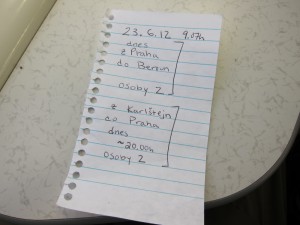 23.6.12 9.07h
dnes
z Praha
do Beroun
osoby 2
z Karlštejn
do Praha
dnes
~20.00h
osoby 2